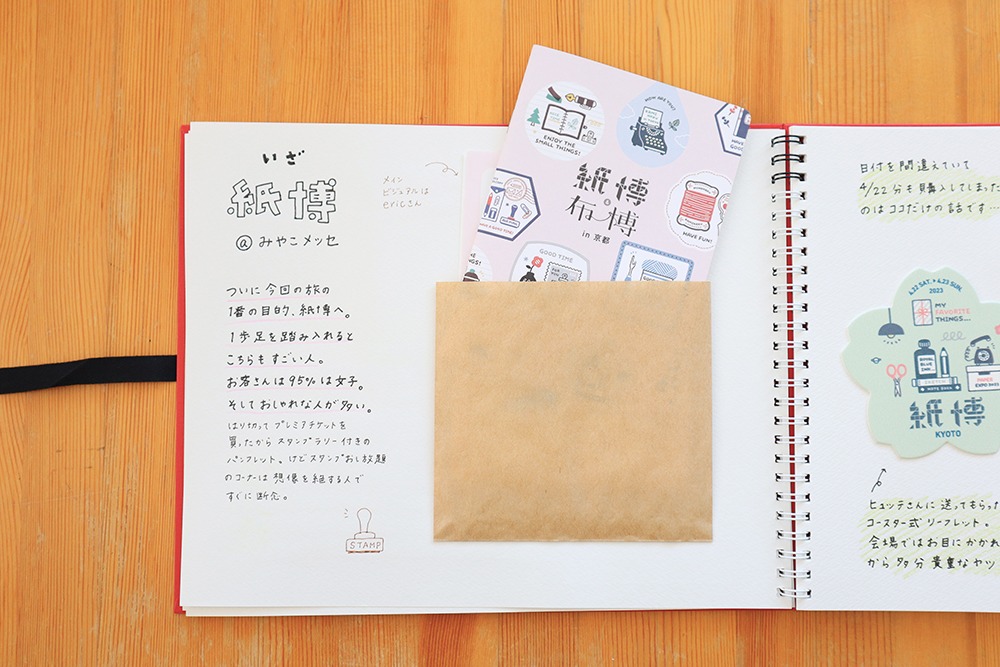 いざ
紙博
@みやこメッセ
メイン
ビジュアルは
ericさん
ついに今回の旅の
1番の目的、紙博へ。
1歩足を踏み入れると
こちらもすごい人。
お客さんは95%は女子。
そしておしゃれな人が多い。
はり切ってプレミアチケットを
買ったからスタンプラリー付きの
パンフレット。けどスタンプおし放題
のコーナーは想像を絶する人で
すぐに断念。
STAMP
ENJOY THE
SMALL THINGS!
HOW ARE YOU?
HAVE
GOOD
紙博
&
布博
in 京都
HAVE A GOOD TIME!
HAVE FUN!
GOOD TIME
THINGS!
日付を間違えていて
4/22分も購入してしまった
のはココだけの話です…
4.22 SAT. 4.23 SUN.
2023
MY
FAVORITE
THINGS....
ROYAL
BLUE
INK
紙博
KYOTO
ヒュッテさんに送ってもらった
コースター式リーフレット。
会場ではお目にかかれ
から多分貴重なヤツ